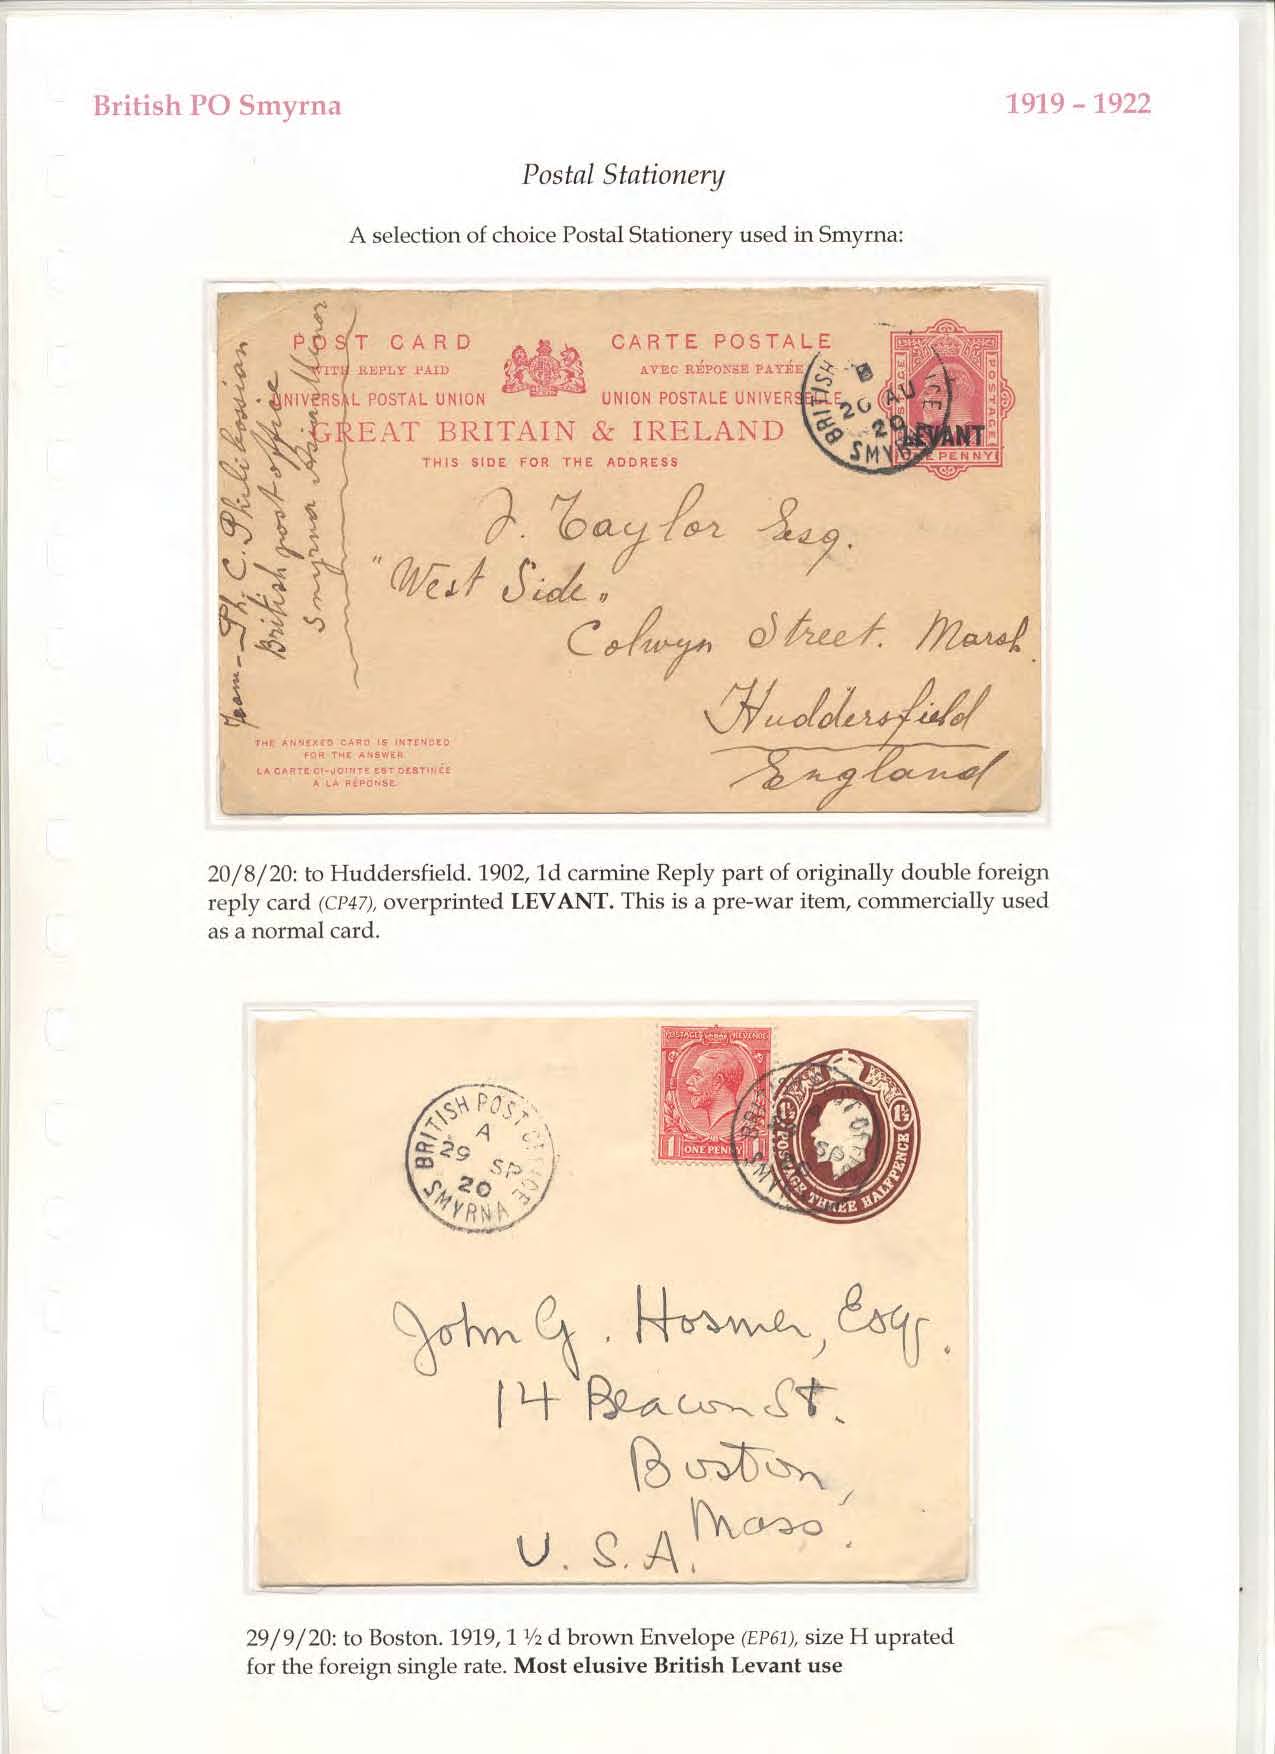 British PO Smyrna
1919 – 1922
Postal Stationery
A selection of choice Postal Stationery used in Smyrna:
POST CARD
WITH REPLY PAID
UNIVERSAL POSTAL UNION
CARTE POSTALE
AVEC RÉPONSE PAYÉE
UNION POSTALE UNIVERSELLE
GREAT BRITAIN & IRELAND
THIS SIDE FOR THE ADDRESS
POSTAGE
LEVANT
ONE PENNY
BRITISH
20 AU
20
SMYR
Ph. C. Philibossian
British post office
Smyrna Asia Minor
J. Taylor Esq.
"West Side"
Colwyn Street. Marsh.
Huddersfield
England
THE ANNEXED CARD IS INTENDED
FOR THE ANSWER
LA CARTE CI-JOINTE EST DESTINÉE
A LA RÉPONSE
20/8/20: to Huddersfield. 1902, 1d carmine Reply part of originally double foreign
reply card (CP47), overprinted LEVANT. This is a pre-war item, commercially used
as a normal card.
BRITISH POST OFFICE
A
29 SP
20
SMYRNA
POSTAGE REVENUE
1 ONE PENNY 1
1½ POSTAGE THREE HALFPENCE 1½
John G. Hosmer, Esqr.
14 Beacon St.
Boston,
Mass.
U.S.A.
29/9/20: to Boston. 1919, 1 ½ d brown Envelope (EP61), size H uprated
for the foreign single rate. Most elusive British Levant use